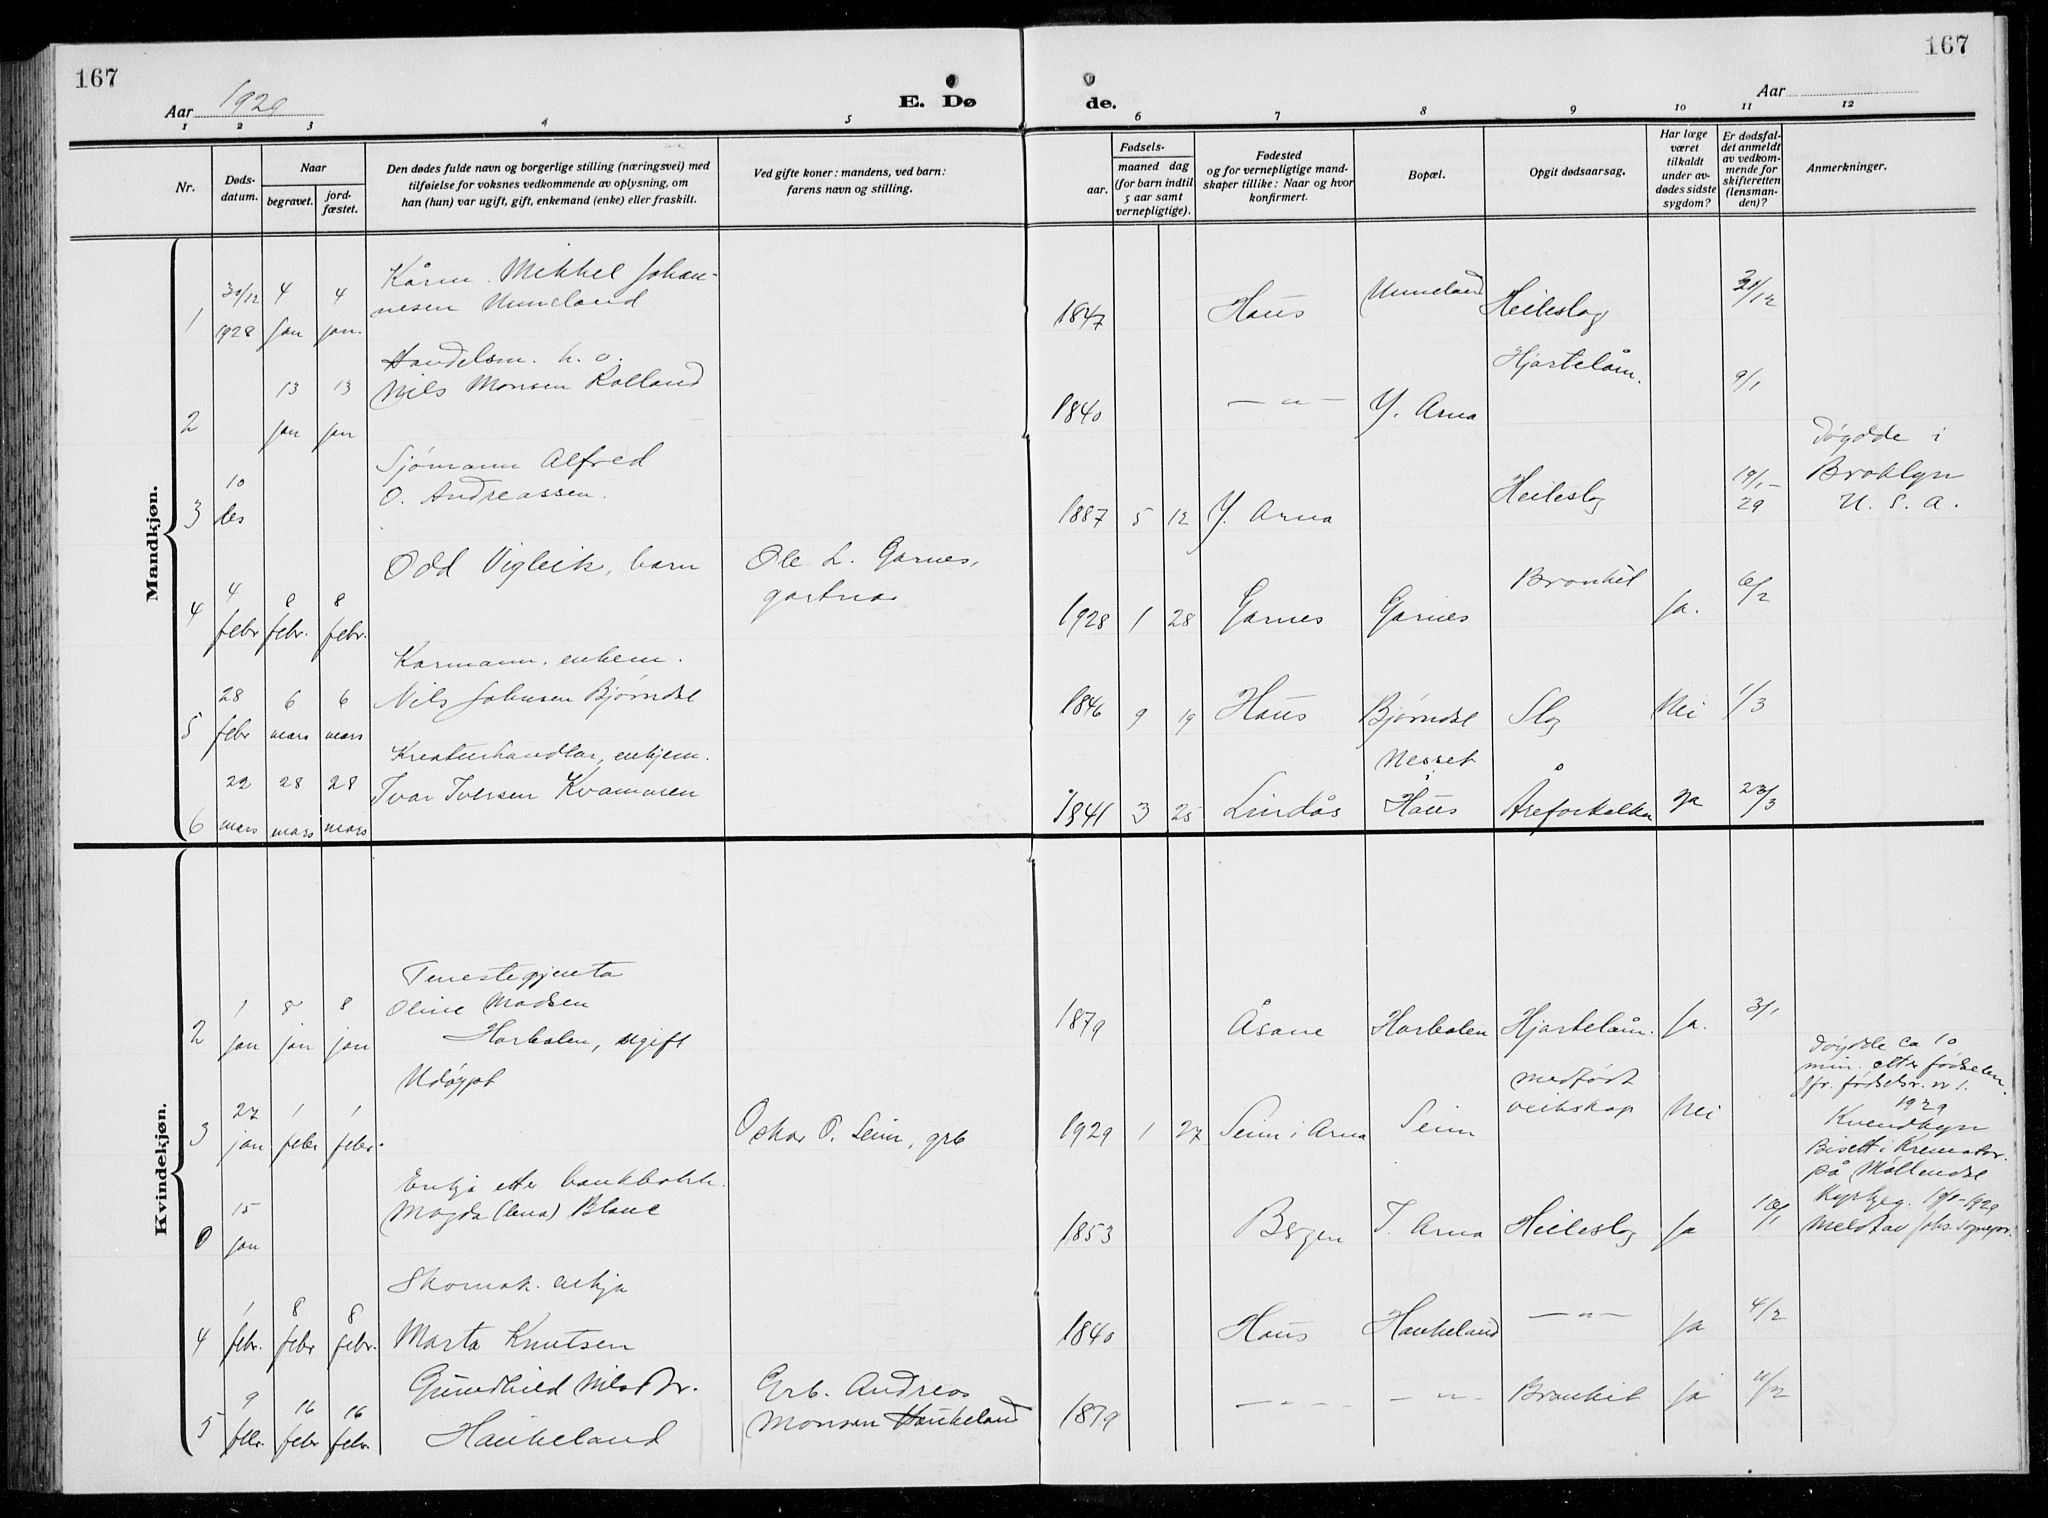 167
167
Aar 1929
E. Dø
de.
Aar
1 2 3 4 5 6 7 8 9 10 11 12
Nr.
Døds-
datum.
Naar
begravet.
jord-
fæstet.
Den dødes fulde navn og borgerlige stilling (næringsvei) med
tilføielse for voksnes vedkommende av oplysning, om
han (hun) var ugift, gift, enkemand (enke) eller fraskilt.
Ved gifte koner: mandens, ved barn:
farens navn og stilling.
Fødsels-
aar.
maaned dag
(for barn indtil
5 aar samt
vernepligtige).
Fødested
og for vernepligtige mand-
skaper tillike: Naar og hvor
konfirmert.
Bopæl.
Opgit dødsaarsag.
Har læge
været
tilkaldt
under av-
dødes sidste
sygdom?
Er dødsfal-
det anmeldt
av vedkom-
mende for
skifteretten
(lensman-
den)?
Anmerkninger.
Mandkjøn.
1 30/12 1928 4 jan 4 jan. Kårm. Mikkel Johan-
nesen Unneland 1847 Haus Unneland Heileslag 31/12
2 13 jan 13 jan Handelsm. h. o.
Nils Monsen Rolland 1840 — " — Y. Arna Hjartelåm. 9/1
3 10 des Sjømann Alfred
O. Andreassen. 1887 5 12 Y. Arna Heileslag 10/1-29 Døydde i
Broklyn
U. S. A.
4 4 febr 8 febr. 8 febr. Odd Vigleik, barn Ole L. Garnes,
gartnar 1928 1 28 Garnes Garnes Bronkit Ja. 6/2
5 28 febr 6 mars 6 mars Karmann. enkem.
Nils Johnsen Bjørndal 1846 9 19 Haus Bjørndal Slag Nei 1/3
6 22 mars 28 mars 28 mars Kreaturhandlar, enkjem.
Ivar Iversen Kvammen 1841 3 25 Lindås Nesset
i Haus Åreforkalkn Ja 23/3
Kvindekjøn.
2 1 jan 8 jan 8 jan Tenestegjenta
Oline Madsen
Horbolen, ugift 1879 Åsane Horbolen Hjartelåm. Ja. 3/1
3 27 jan 1 febr 1 febr. Udøypt Oskar O. Seim, grb 1929 1 27 Seim i Arna Seim medfødt
veikskap Nei Døydde ca 10
min. etter fødselen.
Jfr. fødselsr. nr 1.
1929
Kvendkyn
0 15 jan Enkja etter bankbokh.
Magda (Lena) Blanc 1853 Bergen T. Arna Heileslag Ja 18/1 Bisett i Kremator.
på Møllendal
Kyrkjeg. 19/1-1929
Meldt av Johs. sognepr.
4 1 febr. 8 febr 8 febr. Skomak. enkja
Marta Knutsen 1840 Haus Haukeland — " — Ja 4/2
5 9 febr. 16 febr 16 febr. Gundhild Nilsdtr.
Haukeland Grb. Andreas
Monsen Haukeland 1879 — " — — " — Bronkit Ja 11/2